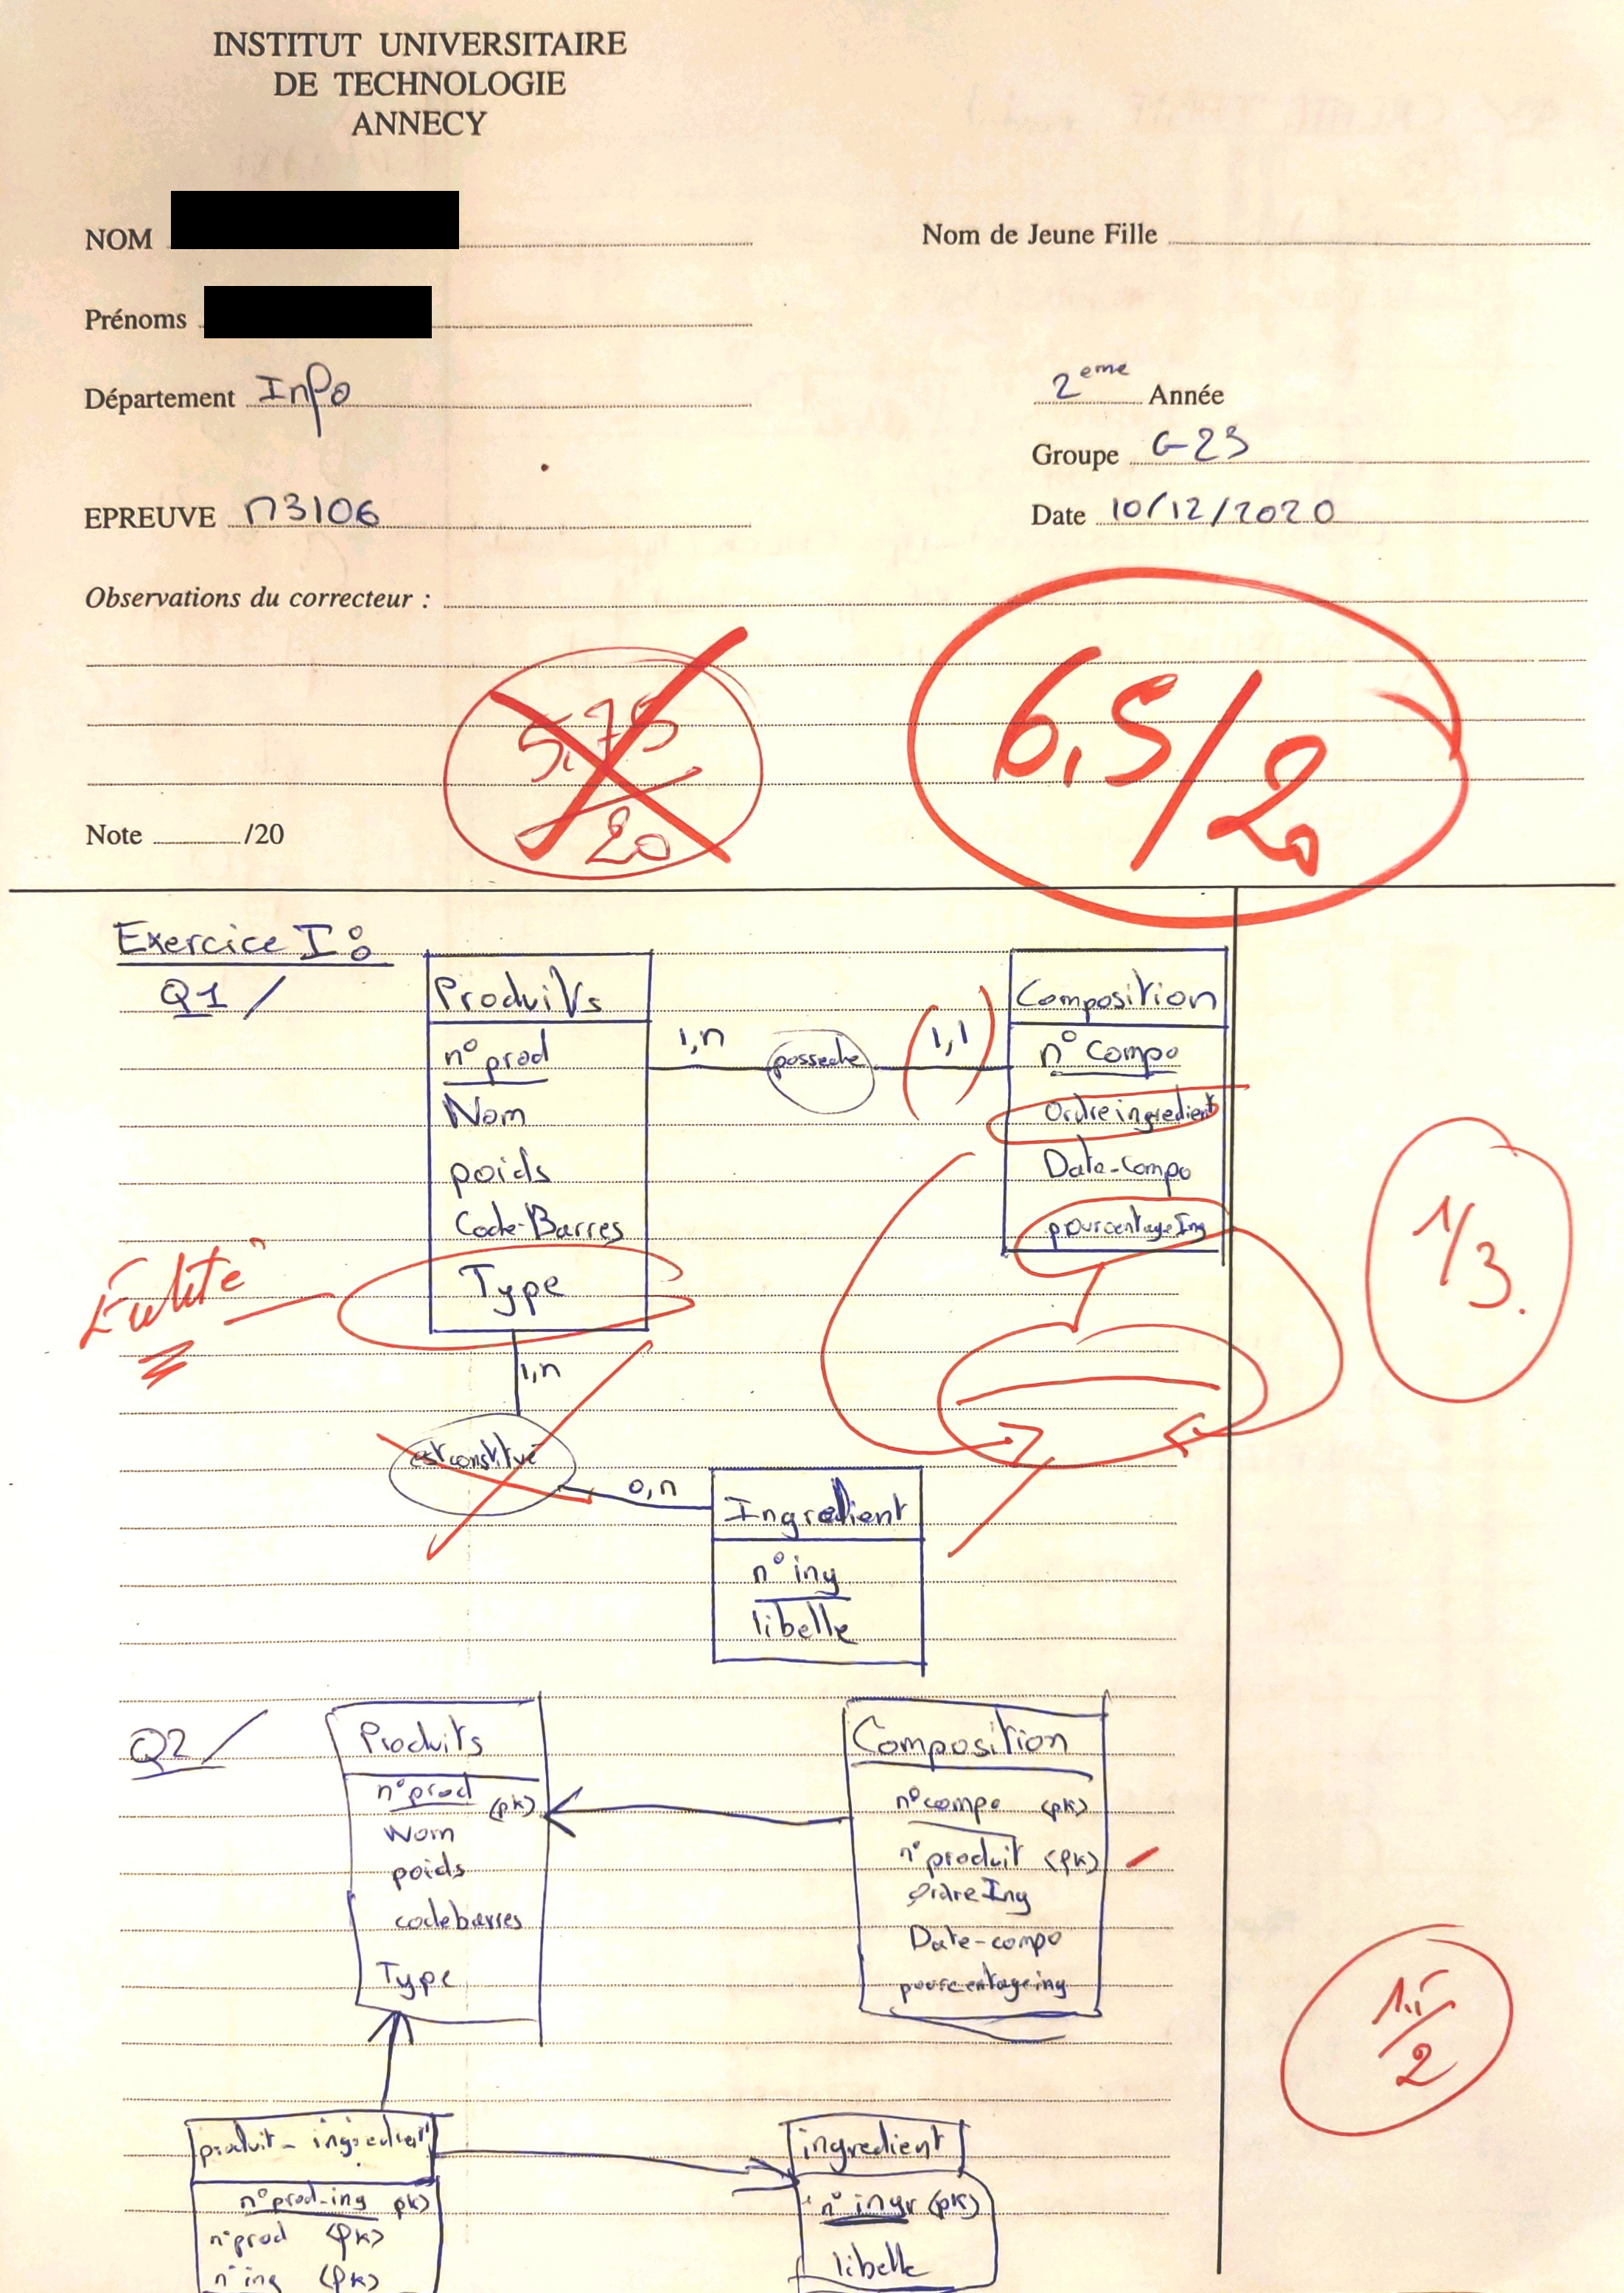 INSTITUT UNIVERSITAIRE
DE TECHNOLOGIE
ANNECY
NOM
Nom de Jeune Fille
Prénoms
Département Info
2eme Année
Groupe G-23
EPREUVE M3106
Date 10/12/2020
Observations du correcteur :
5,75
20
6,5/20
Note /20
Exercice I :
Q1 /
Produits
n° prod
Nom
poids
Code-Barres
Type
1,n
possede
1,1
Composition
n° Compo
Ordre ingredient
Date-Compo
pourcentage Ing
1/3.
Entité
1,n
est constitué
0,n
Ingredient
n° ing
libelle
Q2 /
Produits
n° prod (pk)
Nom
poids
codebarres
Type
Composition
n° compo (pk)
n° produit (fk)
Ordre Ing
Date-compo
pourcentageing
2
produit - ingredient
n° prod-ing pk)
n° prod (fk)
n° ing (fk)
ingredient
n° ingr (pk)
libelle